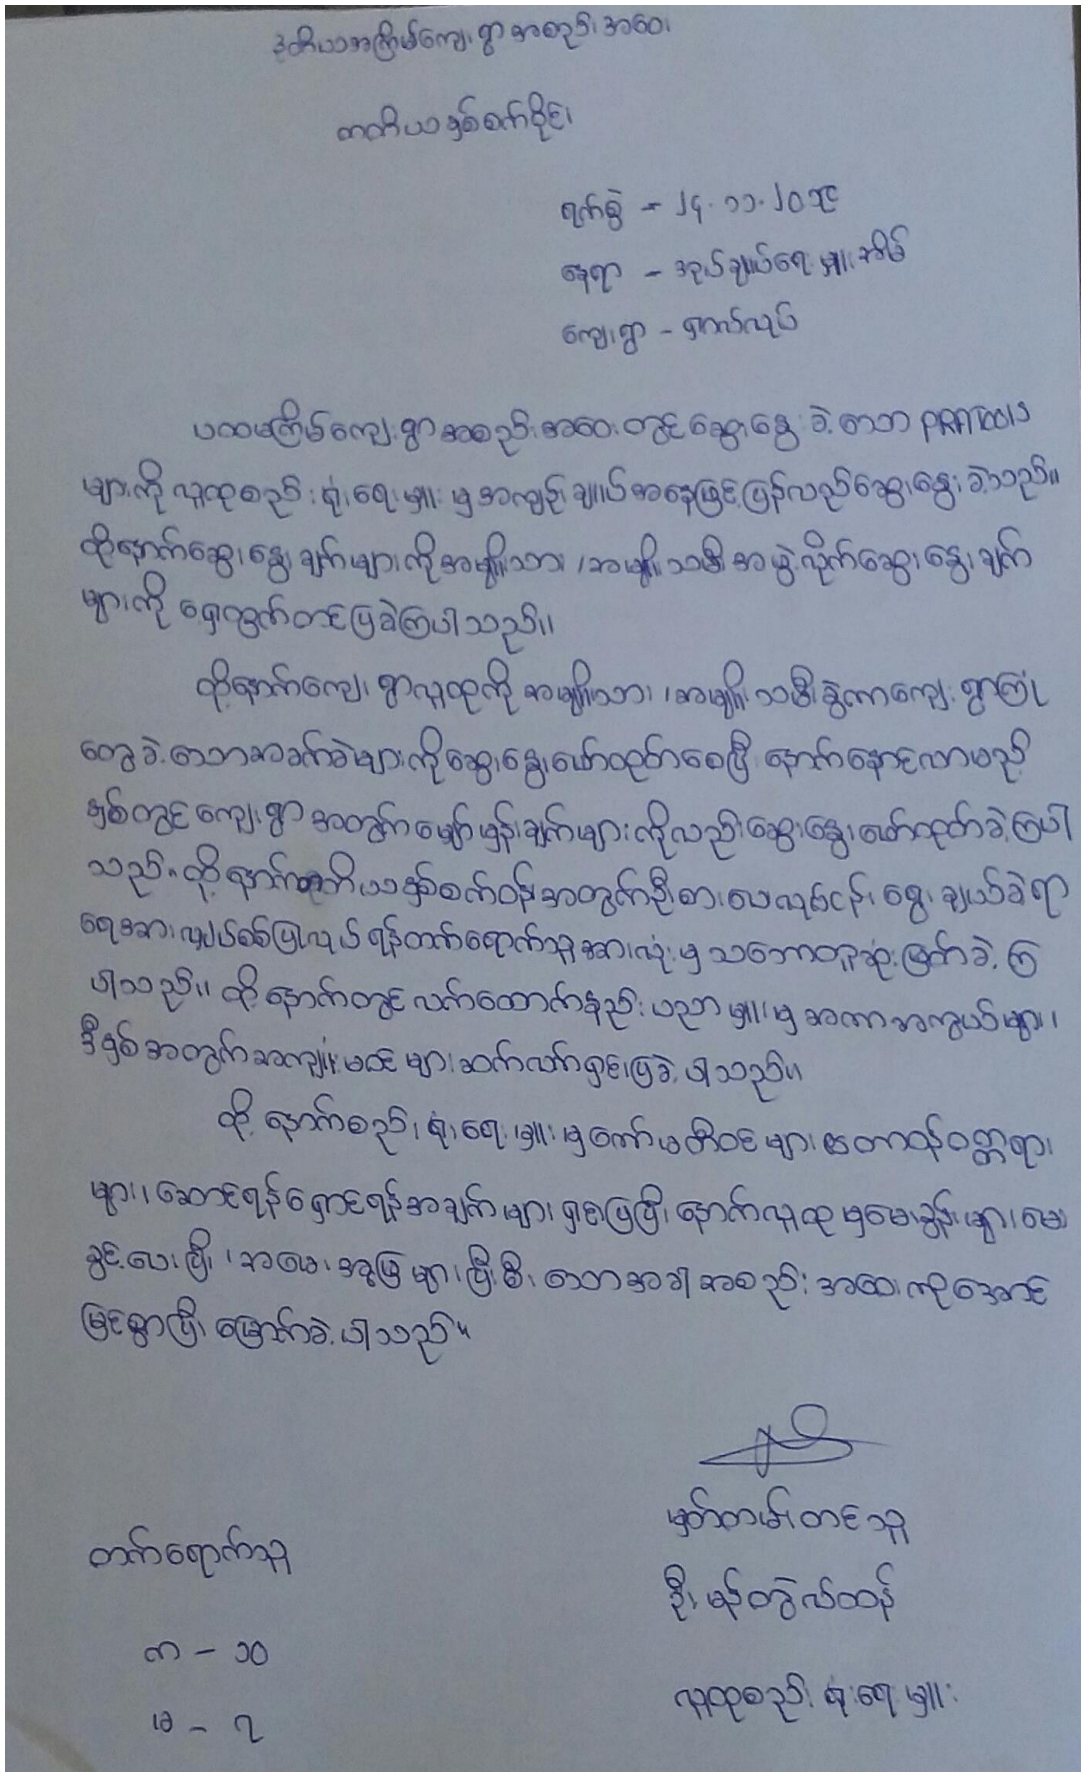 ဒုတိယအကြိမ်ကျေးရွာအစည်းအဝေး
တတိယနှစ်စက်ဝိုင်း
ရက်စွဲ - ၂၄.၁၁.၂၀၁၄
နေရာ - အုပ်ချုပ်ရေးမှူးအိမ်
ကျေးရွာ -
ပထမကြိမ်ကျေးရွာအစည်းအဝေးတွင်ဆွေးနွေးခဲ့သော PRA Tools
များကို လူထုစည်းရုံးရေးမှူးမှအကျဉ်းချုပ်အနေဖြင့်ပြန်လည်ဆွေးနွေးခဲ့သည်။
ထို့နောက်ဆွေးနွေးချက်များကိုအမျိုးသား၊အမျိုးသမီးအဖွဲ့လိုက်ဆွေးနွေးချက်
များကို ရှေ့ထွက်တင်ပြခဲ့ကြပါသည်။
ထို့နောက်ကျေးရွာလူထုကို အမျိုးသား၊အမျိုးသမီးခွဲကာကျေးရွာကြုံ
တွေ့ခဲ့သောအခက်ခဲများကိုဆွေးနွေးဖော်ထုတ်စေပြီး နောက်နောင်လာမည့်
နှစ်တွင်ကျေးရွာအတွက်မျှော်မှန်းချက်များကိုလည်းဆွေးနွေးဖော်ထုတ်ခဲ့ကြပါ
သည်။ ထို့နောက်တတိယနှစ်စက်ဝန်းအတွက်ဦးစားပေးလုပ်ငန်းရွေးချယ်ခဲ့ရာ
ရေအားလျှပ်စစ်ပြုလုပ်ရန်တက်ရောက်သူအားလုံးမှသဘောတူဆုံးဖြတ်ခဲ့ကြ
ပါသည်။ ထို့နောက်တွင်လက်ထောက်နည်းပညာမှူးမှအကာအကွယ်များ၊
ဒီနှစ်အတွက်အကျုံးမဝင်များဆက်လက်ရှင်းပြခဲ့ပါသည်။
ထို့နောက်စည်းရုံးရေးမှူးမှကော်မတီဝင်များ၏တာဝန်ဝတ္တရား
များ၊ဆောင်ရန်ရှောင်ရန်အချက်များရှင်းပြပြီးနောက်လူထုမှမေးခွန်းများမေး
ခွင့်ပေးပြီး၊အမေးအဖြေများပြီးစီးသောအခါအစည်းအဝေးကိုအောင်
မြင်စွာပြီးမြောက်ခဲ့ပါသည်။
မှတ်တမ်းတင်သူ
တက်ရောက်သူ
ဦးမန်တွဲလ်ထန်
ကာ - ၁၀
မ - ၇
လူထုစည်းရုံးရေးမှူး